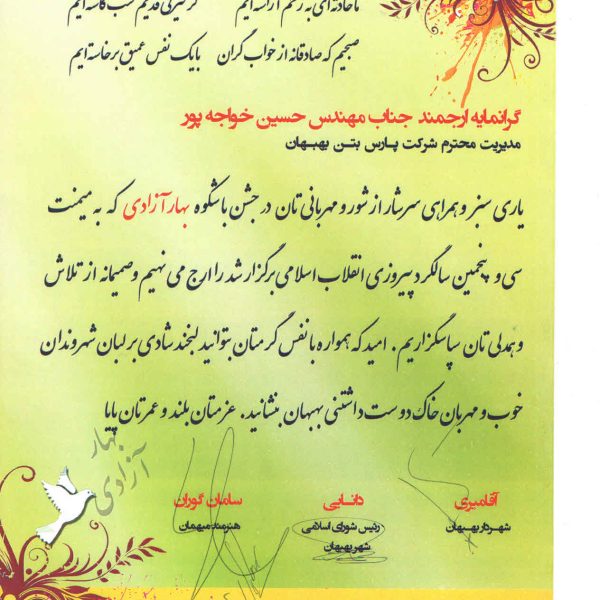 ما حادثه‌ای به رسم آراسته‌ایم
صبحیم که صادقانه از خواب گران با یک نفس عمیق برخاسته‌ایم
گرانمایه ارجمند جناب مهندس حسین خواجه پور
مدیریت محترم شرکت پارس بتن بهبهان
یاری سبز و همراهی سرشار از شور و مهربانی تان در جشن باشکوه بهار آزادی که به میمنت
سی و پنجمین سالگرد پیروزی انقلاب اسلامی برگزار شد را ارج می نهیم و صمیمانه از تلاش
و همدلی تان سپاسگزاریم. امید که همواره با نفس گرمتان بتوانید لبخند شادی بر لبان شهروندان
خوب و مهربان خاک دوست داشتنی بهبهان بنشانید. عزمتان بلند و عمرتان پایا
بهار
آزادی
آقامیری دانایی سامان گوران
شهردار بهبهان رئیس شورای اسلامی هنرمند میهمان
شهر بهبهان